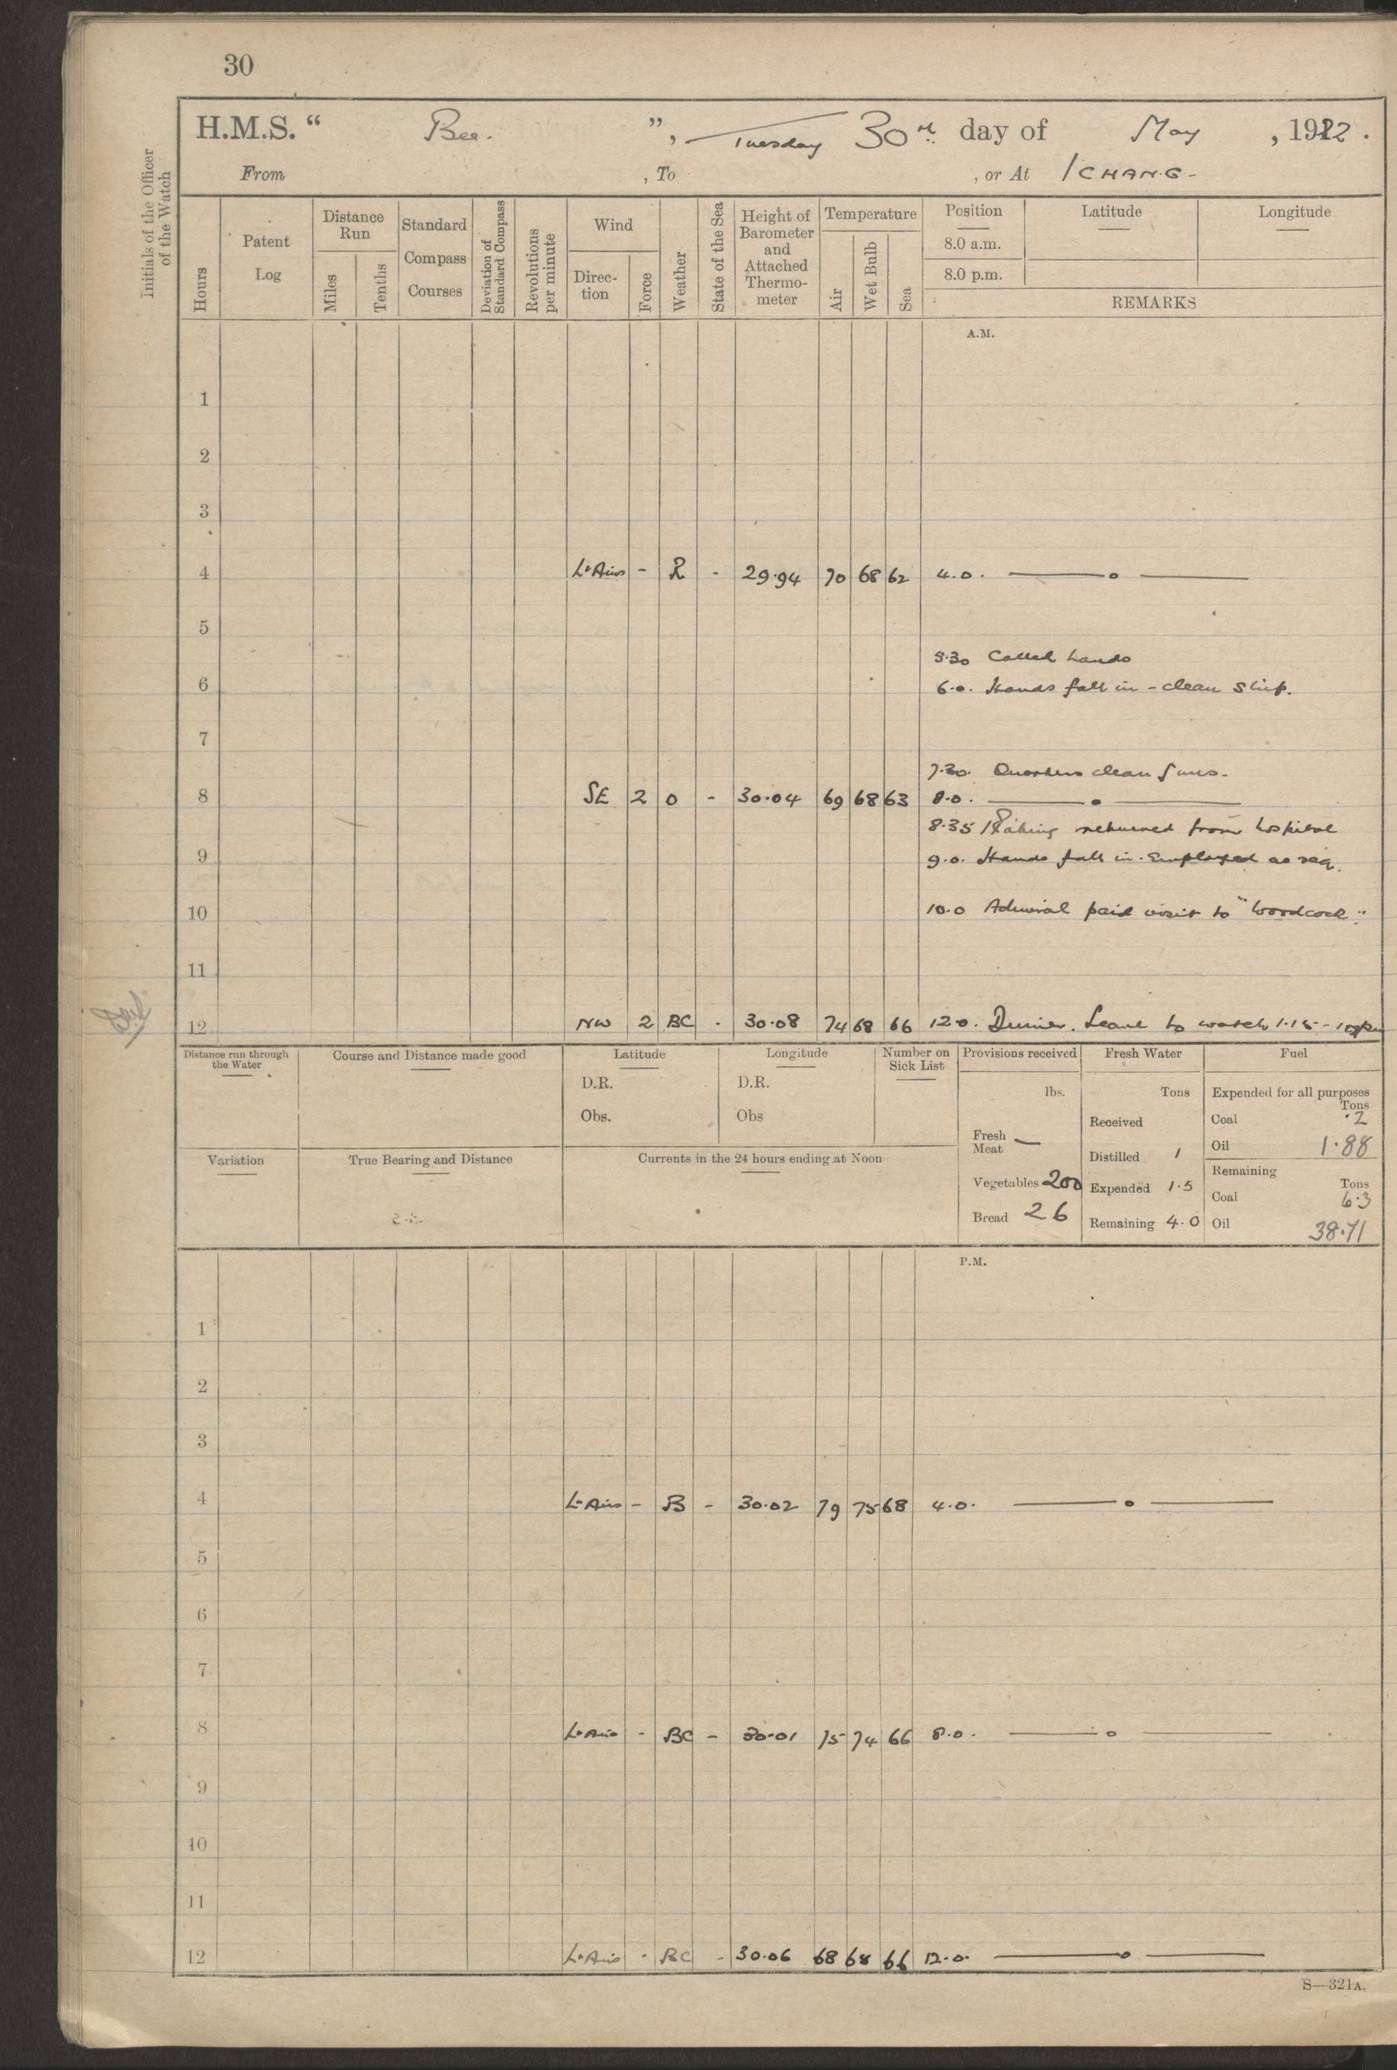 30
H.M.S. “ Bee. ”, Tuesday 30th day of May , 1922.
From , To , or At ICHANG-
Initials of the Officer of the Watch
Hours
Patent Log
Distance Run
Miles
Tenths
Standard Compass Courses
Deviation of Standard Compass
Revolutions per minute
Wind
Direction
Force
Weather
State of the Sea
Height of Barometer and Attached Thermometer
Temperature
Air
Wet Bulb
Sea
Position
8.0 a.m.
8.0 p.m.
Latitude
Longitude
REMARKS
A.M.
1
2
3
4 Lt Airs - R - 29.94 70 68 62 4.0. ——o——
5
5.30 Called hands
6 6.0. Hands fall in - clean ship.
7
7.30. Quarters clean guns.
8 SE 2 O - 30.04 69 68 63 8.0. ——o——
8.35 returned from hospital
9 9.0. Hands fall in. Employed as req.
10 10.0 Admiral paid visit to "Woodcock".
11
12 NW 2 BC - 30.08 74 68 66 12.0. Dinner. Leave to watch 1.15 - 10pm
Distance run through the Water
Course and Distance made good
Latitude
D.R.
Obs.
Longitude
D.R.
Obs
Number on Sick List
Provisions received
lbs.
Fresh Meat —
Vegetables 200
Bread 26
Fresh Water
Tons
Received
Distilled 1
Expended 1.5
Remaining 4.0
Fuel
Expended for all purposes
Tons
Coal .2
Oil 1.88
Remaining
Tons
Coal 6.3
Oil 38.71
Variation
True Bearing and Distance
Currents in the 24 hours ending at Noon
P.M.
1
2
3
4 Lt Airs - B - 30.02 79 75 68 4.0. ——o——
5
6
7
8 Lt Airs - BC - 30.01 75 74 66 8.0. ——o——
9
10
11
12 Lt Airs - BC - 30.06 68 68 66 12.0. ——o——
S—321A.